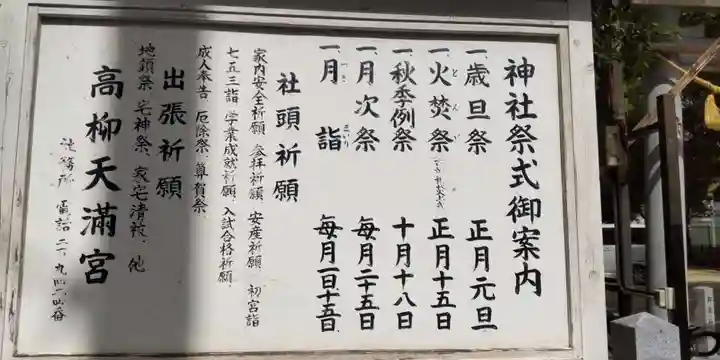 神社祭式御案内
一、歳旦祭 正月元旦
一、火焚祭 正月十五日
とんど
一、秋季例祭 十月十八日
一、月次祭 毎月二十五日
一、月詣 毎月一日、十五日
つき まいり
社頭祈願
家内安全祈願 参拝祈願 安産祈願 初宮詣
七五三詣 学業成就祈願、入試合格祈願、
成人奉告 厄除祭、算賀祭、
出張祈願
地鎮祭、宅神祭、家宅清祓、他
高柳天満宮
社務所 電話